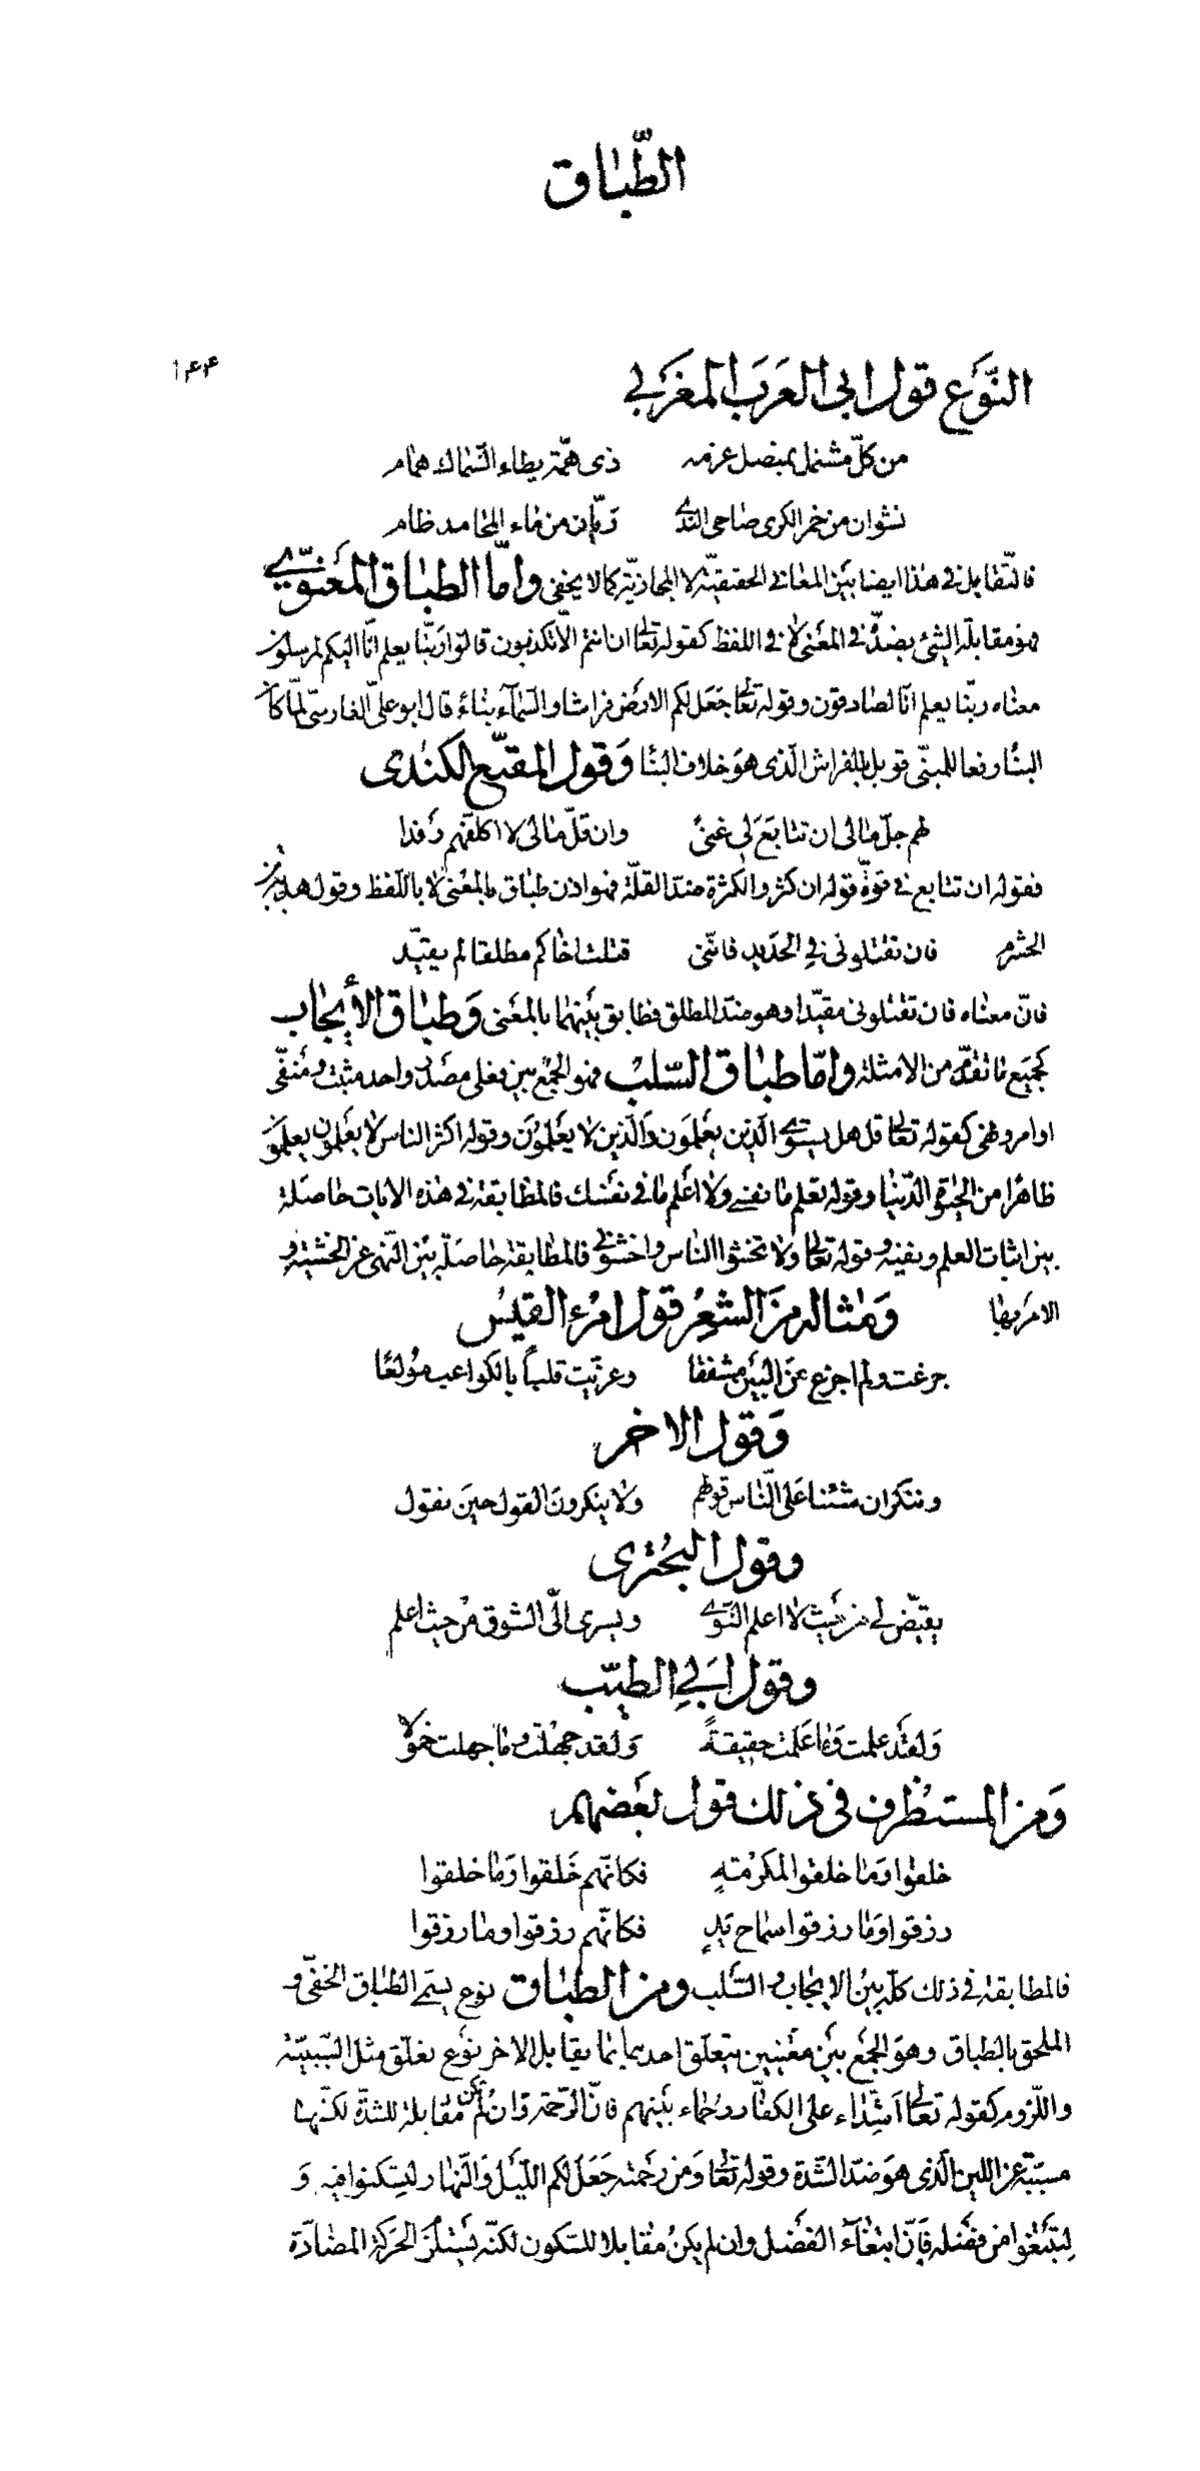 الطّباق
١٤٤
النّوع قول ابى العرب المغربي
من كلّ مشتمل بمنصل عزمه ذى همّة يطاء السّماك همام
نشوان من خمر الكرى صاحى الندى ريّان من ماء المحامد ظام
فالتّقابل في هذا ايضا بين المعاني الحقيقيّة لا المجازيّة كما لا يخفى وامّا الطباق المعنويّ
فهو مقابلة الشئ بضدّه في المعنى لا في اللفظ كقوله تعالى ان انتم الّا تكذبون قالوا ربّنا يعلم انّا اليكم لمرسلون
معناه ربّنا يعلم انّا لصادقون وقوله تعالى جعل لكم الارض فراشا والسّمآء بناء قال ابو علىّ الفارسىّ لمّا كان
البناء رفعا للمبنّى قوبل بالفراش الّذى هو خلاف البناء وقول المقنّع الكندى
لهم جلّ مالى ان تتابع لي غنىً وان قلّ مالى لا اكلّفهم رفدا
فقوله ان تتابع في قوّة قوله ان كثر والكثرة ضدّ القلّة فهو اذن طباق بالمعنى لا باللّفظ وقول هدبة بن
الخشرم فان تقتلونى في الحديد فانّنى قتلت اخاكم مطلقا لم يقيّد
فانّ معناه فان تقتلونى مقيّدا وهو ضدّ المطلق فطابق بينهما بالمعنى وطباق الأيجاب
كجميع ما تقدّم من الامثلة وامّا طباق السّلب فهو الجمع بين فعلى مصدر واحد مثبت ومنفّى
او امر ونهى كقوله تعالى قل هل يستوي الّذين يعلمون والّذين لا يعلمون وقوله اكثر الناس لا يعلمون يعلمون
ظاهرا من الحيوة الدّنيا وقوله تعلم ما نفسي ولا اعلم ما في نفسك فالمطابقة في هذه الايات حاصلة
بين اثبات العلم ونفيه وقوله تعالى ولا تخشوا الناس واخشوني فالمطابقة حاصلة بين النّهى عن الخشية و
الامر بها ومثاله من الشعر قول امرء القيس
جزعت ولم اجزع من البين مشفقا وعزّيت قلباً بالكواعب مولعًا
وقول الاخر
وننكر ان شئنا على النّاس قولهم ولا ينكرون القول حين نقول
وقول البحترى
يقيّض لي من حيث لا اعلم النّوى ويسرى الىّ الشوق من حيث اعلم
وقول ابي الطيّب
ولقد علمت وما علمت حقيقةً ولقد جهلت وما جهلت خمولا
ومن المستظرف في ذلك قول بعضهم
خلقوا وما خلقوا لمكرمةٍ فكانّهم خلقوا وما خلقوا
رزقوا وما رزقوا سماح يدٍ فكانّهم رزقوا وما رزقوا
فالمطابقة في ذلك كلّه بين الايجاب والسّلب ومن الطباق نوع يسمّى الطباق الخفّى و
الملحق بالطباق وهو الجمع بين معنيين يتعلّق احدهما بما يقابل الاخر نوع تعلّق مثل السّببيّة
واللّزوم كقوله تعالى اشدّاء على الكفّار رحماء بينهم فانّ الرّحمة وان لم تكن مقابلة للشدّة لكنّها
مسبّبة عن اللين الّذى هو ضدّ الشّدة وقوله تعالى ومن رحمته جعل لكم اللّيل والنّهار لتسكنوا فيه و
لتبتغوا من فضله فانّ ابتغآء الفضل وان لم يكن مقابلا للسّكون لكنّه يستلزم الحركة المضادّة